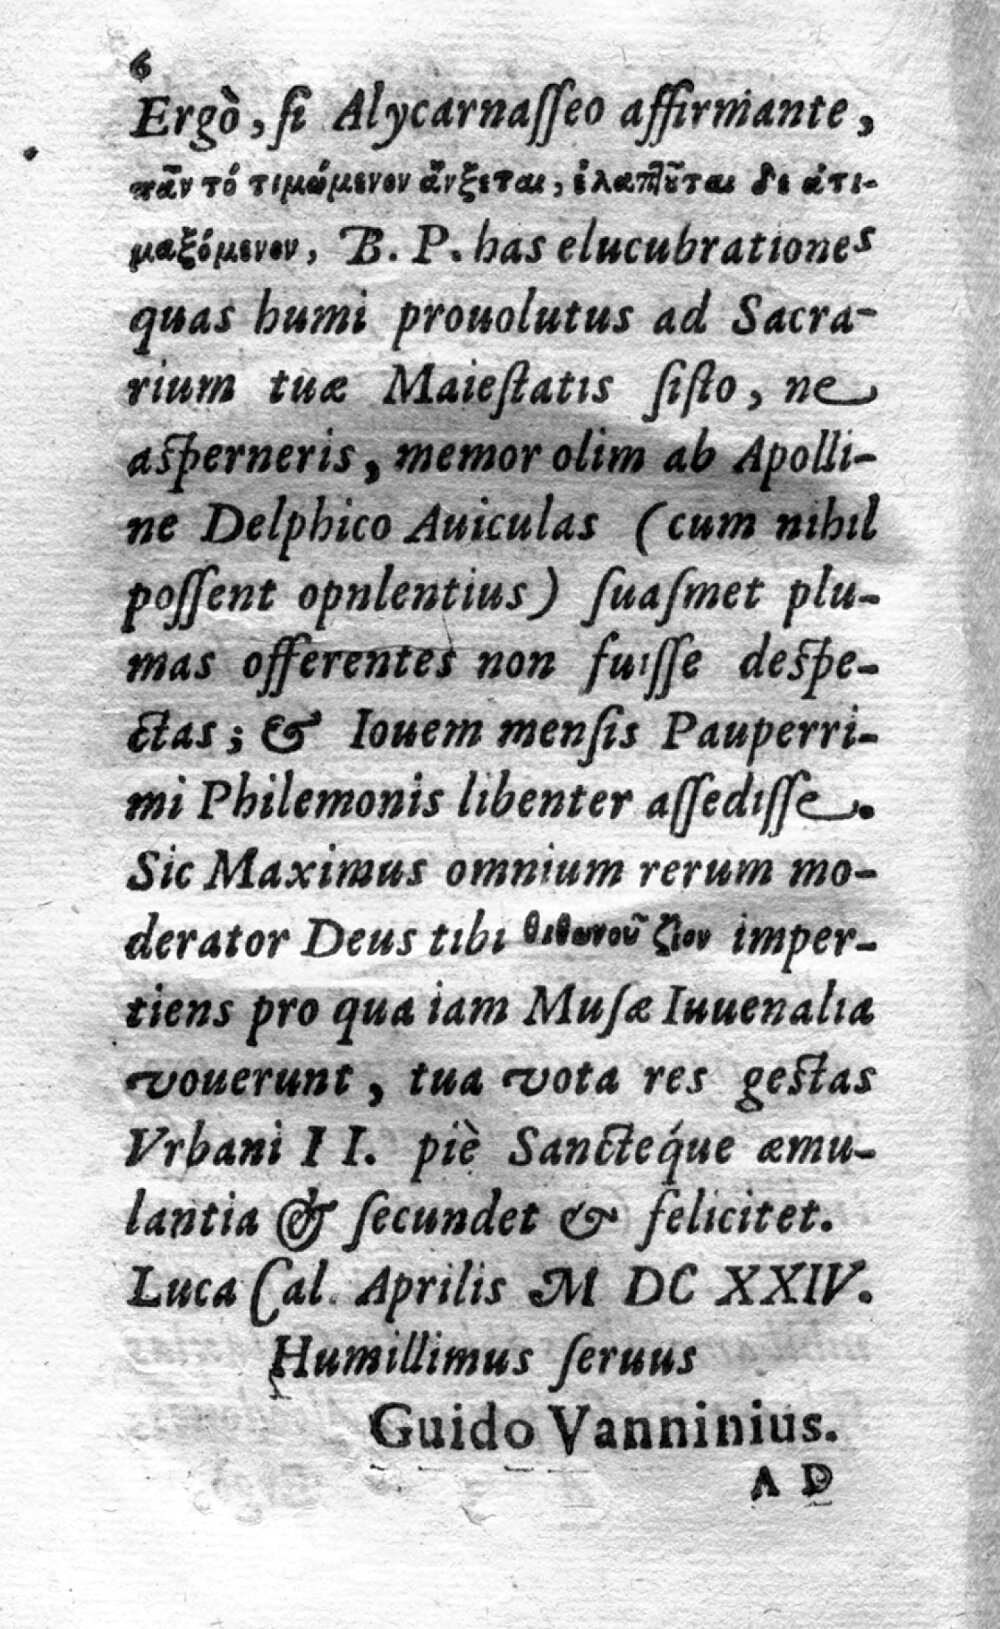 6
Ergò, ſi Alycarnaſſeo affirmante,
πᾶν τό τιμώμενον ἄνξεται, ἐλαπῆοῦται δε ἀτι-
μαξόμενον, B. P. has elucubrationes
quas humi prouolutus ad Sacra-
rium tuæ Maieſtatis ſiſto, ne
aſperneris, memor olim ab Apolli-
ne Delphico Auiculas (cum nihil
poſſent opnlentius) ſuaſmet plu-
mas offerentes non fuiſſe deſpe-
ctas; & Iouem menſis Pauperri-
mi Philemonis libenter aſſediſſe.
Sic Maximus omnium rerum mo-
derator Deus tibi θιθωνοῦ ζίον imper-
tiens pro qua iam Muſæ Iuuenalia
vouerunt, tua vota res geſtas
Vrbani II. piè Sanctéque æmu-
lantia & ſecundet & felicitet.
Luca Cal. Aprilis M DC XXIV.
Humillimus ſeruus
Guido Vanninius.
AD